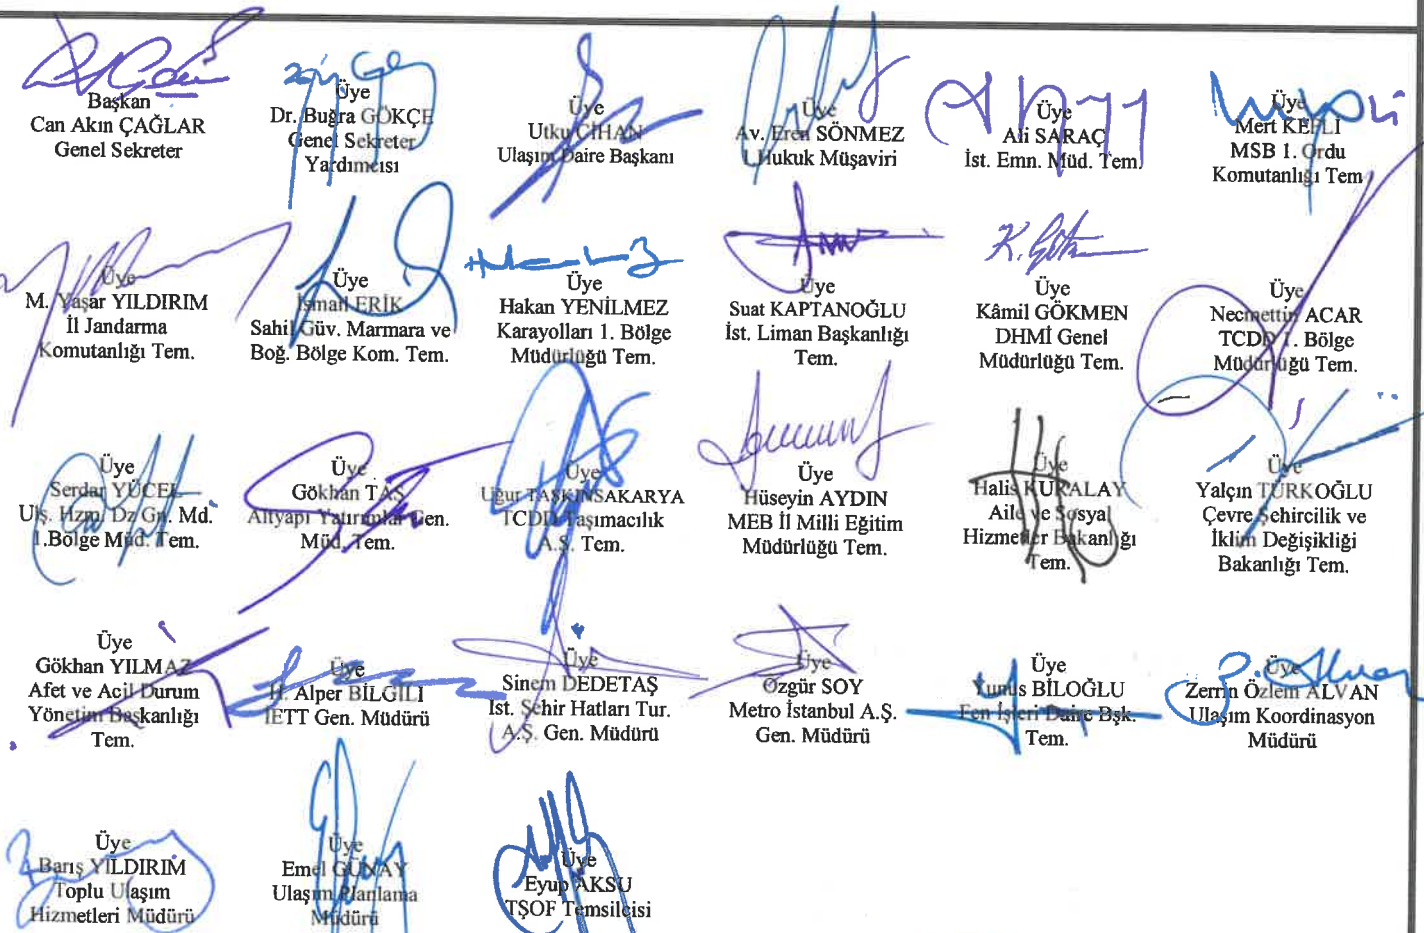 Başkan
Can Akın ÇAĞLAR
Genel Sekreter
Üye
Dr. Buğra GÖKÇE
Genel Sekreter
Yardımcısı
Üye
Utku CİHAN
Ulaşım Daire Başkanı
Üye
Av. Eren SÖNMEZ
I.Hukuk Müşaviri
Üye
Ali SARAÇ
İst. Emn. Müd. Tem.
Üye
Mert KEFLİ
MSB 1. Ordu
Komutanlığı Tem
Üye
M. Yaşar YILDIRIM
İl Jandarma
Komutanlığı Tem.
Üye
İsmail ERİK
Sahil Güv. Marmara ve
Boğ. Bölge Kom. Tem.
Üye
Hakan YENİLMEZ
Karayolları 1. Bölge
Müdürlüğü Tem.
Üye
Suat KAPTANOĞLU
İst. Liman Başkanlığı
Tem.
K. Gökmen
Üye
Kâmil GÖKMEN
DHMİ Genel
Müdürlüğü Tem.
Üye
Necmettin ACAR
TCDD 1. Bölge
Müdürlüğü Tem.
Üye
Serdar YÜCEL
Ulş. Hzm. Dz Gn. Md.
1.Bölge Müd. Tem.
Üye
Gökhan TAŞ
Altyapı Yatırımlar Gen.
Müd. Tem.
Üye
Uğur TAŞKINSAKARYA
TCDD Taşımacılık
A.Ş. Tem.
Üye
Hüseyin AYDIN
MEB İl Milli Eğitim
Müdürlüğü Tem.
Üye
Halis KURALAY
Aile ve Sosyal
Hizmetler Bakanlığı
Tem.
Üye
Yalçın TÜRKOĞLU
Çevre Şehircilik ve
İklim Değişikliği
Bakanlığı Tem.
Üye
Gökhan YILMAZ
Afet ve Acil Durum
Yönetim Başkanlığı
Tem.
Üye
H. Alper BİLGİLİ
İETT Gen. Müdürü
Üye
Sinem DEDETAŞ
İst. Şehir Hatları Tur.
A.Ş. Gen. Müdürü
Üye
Özgür SOY
Metro İstanbul A.Ş.
Gen. Müdürü
Üye
Yunus BİLOĞLU
Fen İşleri Daire Bşk.
Tem.
Üye
Zerrin Özlem ALVAN
Ulaşım Koordinasyon
Müdürü
Üye
Barış YILDIRIM
Toplu Ulaşım
Hizmetleri Müdürü
Üye
Emel GÜNAY
Ulaşım Planlama
Müdürü
Üye
Eyup AKSU
TŞOF Temsilcisi